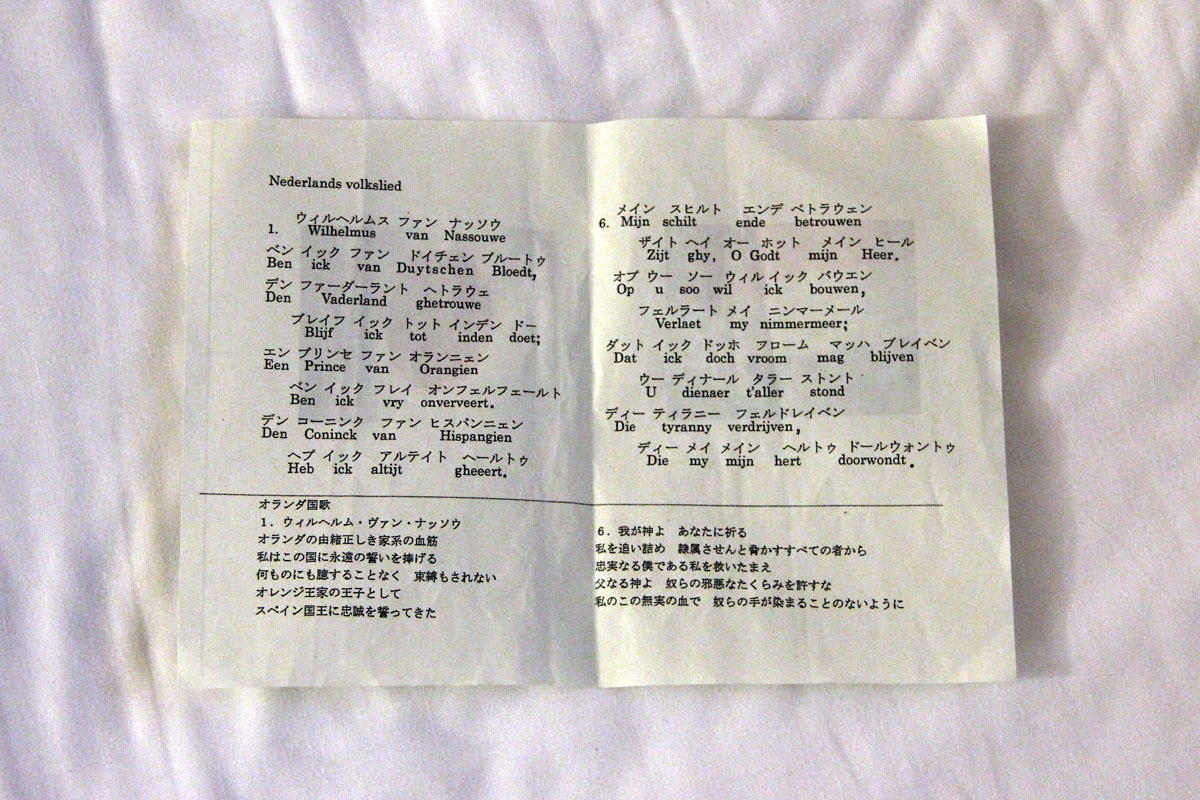 Nederlands volkslied
ウィルヘルムス ファン ナッソウ
1. Wilhelmus van Nassouwe
ベン イック ファン ドイチェン ブルートゥ
Ben ick van Duytschen Bloedt,
デン ファーダーラント ヘトラウェ
Den Vaderland ghetrouwe
ブレイフ イック トット インデン ドー
Blijf ick tot inden doet;
エン プリンセ ファン オランニェン
Een Prince van Orangien
ベン イック フレイ オンフェルフェールト
Ben ick vry onverveert.
デン コーニンク ファン ヒスパンニェン
Den Coninck van Hispangien
ヘプ イック アルテイト ヘールトゥ
Heb ick altijt gheeert.
オランダ国歌
1．ウィルヘルム・ヴァン・ナッソウ
オランダの由緒正しき家系の血筋
私はこの国に永遠の誓いを捧げる
何ものにも臆することなく 束縛もされない
オレンジ王家の王子として
スペイン国王に忠誠を誓ってきた
メイン スヒルト エンデ ベトラウェン
6. Mijn schilt ende betrouwen
ザイト ヘイ オー ホット メイン ヒール
Zijt ghy, O Godt mijn Heer.
オプ ウー ソー ウィル イック バウエン
Op u soo wil ick bouwen,
フェルラート メイ ニンマーメール
Verlaet my nimmermeer;
ダット イック ドッホ フローム マッハ ブレイベン
Dat ick doch vroom mag blijven
ウー ディナール タラー ストント
U dienaer t'aller stond
ディー ティラニー フェルドレイベン
Die tyranny verdrijven,
ディー メイ メイン ヘルトゥ ドールウォントゥ
Die my mijn hert doorwondt.
6．我が神よ あなたに祈る
私を追い詰め 隷属させんと脅かすすべての者から
忠実なる僕である私を救いたまえ
父なる神よ 奴らの邪悪なたくらみを許すな
私のこの無実の血で 奴らの手が染まることのないように